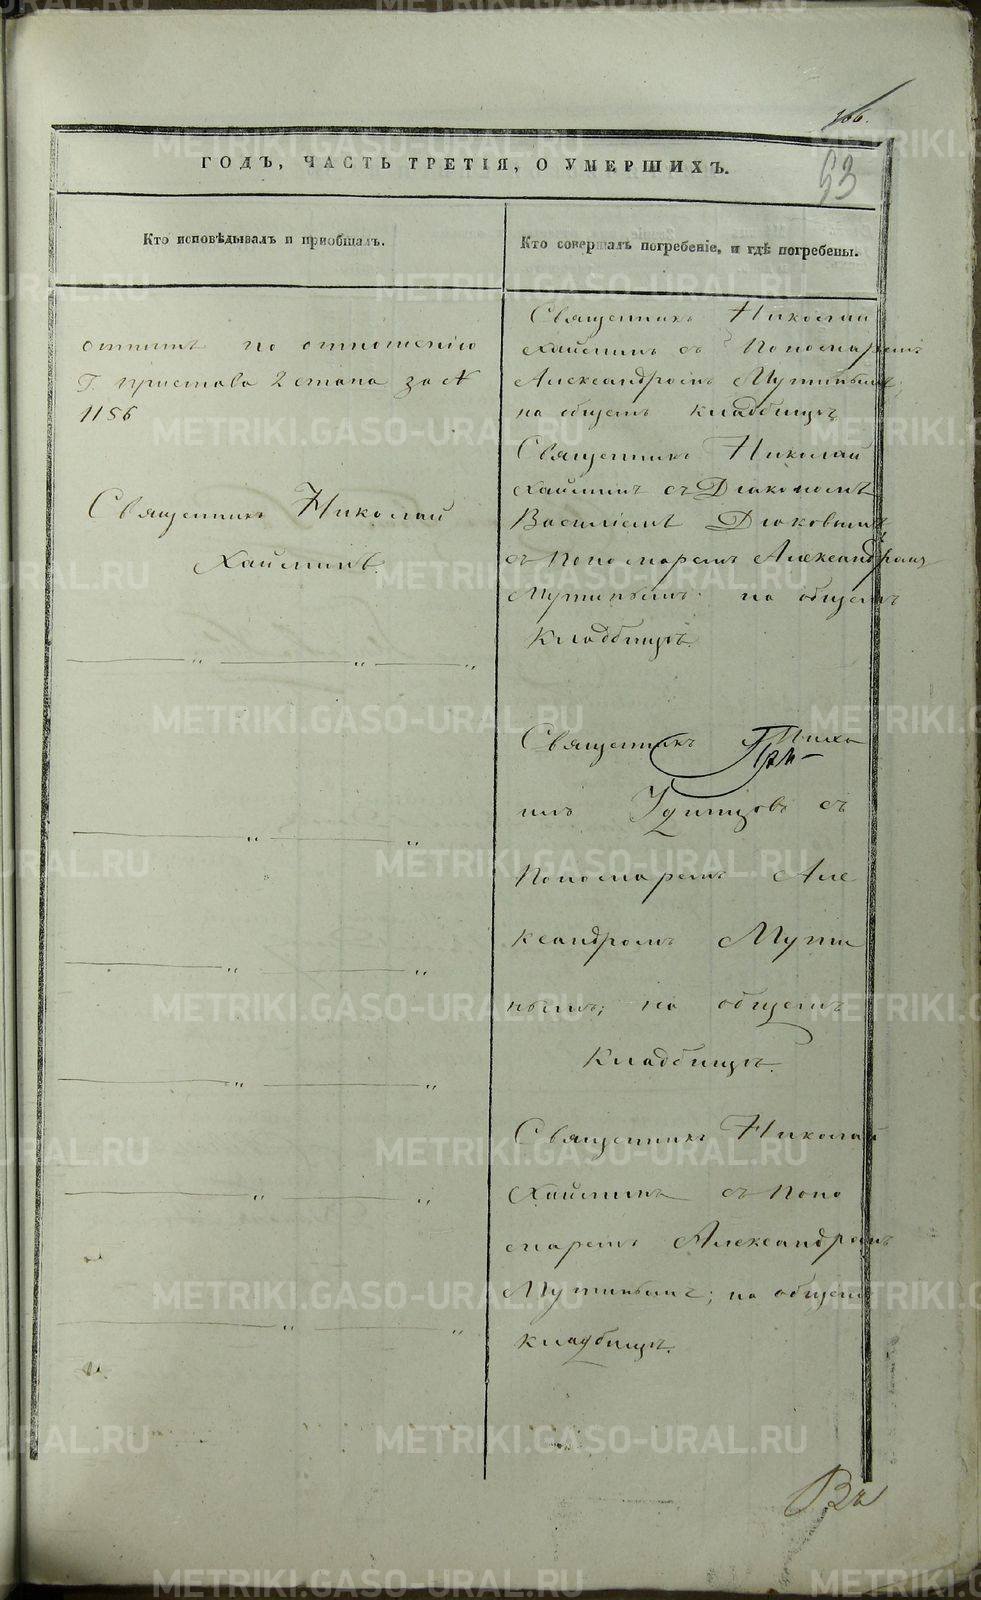 166.
ГОДЪ, ЧАСТЬ ТРЕТІЯ, О УМЕРШИХЪ.
53
Кто исповѣдывалъ и приобщалъ.
Кто совершалъ погребеніе, и гдѣ погребены.
отпитъ по отношенію
Г. пристава 2 стана за №
1156
Священникъ Николай
Хайминъ.
Священникъ Николай
Хайминъ съ Пономаремъ
Александромъ Мутинымъ;
на общемъ кладбищѣ
Священникъ Николай
Хайминъ съ Діакономъ
Василіемъ Дьяковымъ
съ Пономаремъ Александромъ
Мутинымъ на общемъ
Кладбищѣ.
Священникъ Миха
илъ Удинцовъ съ
Пономаремъ Але
ксандромъ Мути
нымъ; на общемъ
Кладбищѣ.
Священникъ Николай
Хайминъ съ Поно
маремъ Александромъ
Мутинымъ; на общемъ
кладбищѣ.
METRIKI.GASO-URAL.RU